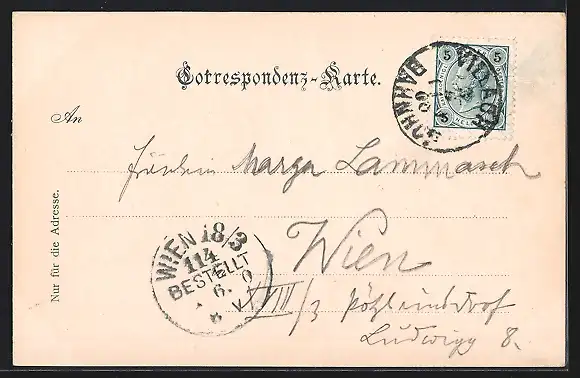 Correspondenz-Karte.
5 5
VILLACH
BAHNHOF
An
Fräulein Marga Lammasch
Wien
XVIII/3 Pötzleinsdorf
Ludwigg 8.
WIEN 18/3
114
BESTELLT
Nur für die Adresse.